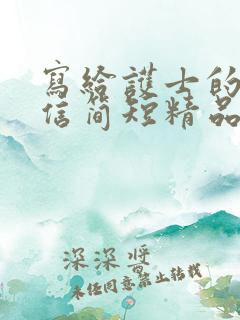 寫給護士的
信簡短精品
深深獎
未經同意禁止轉載